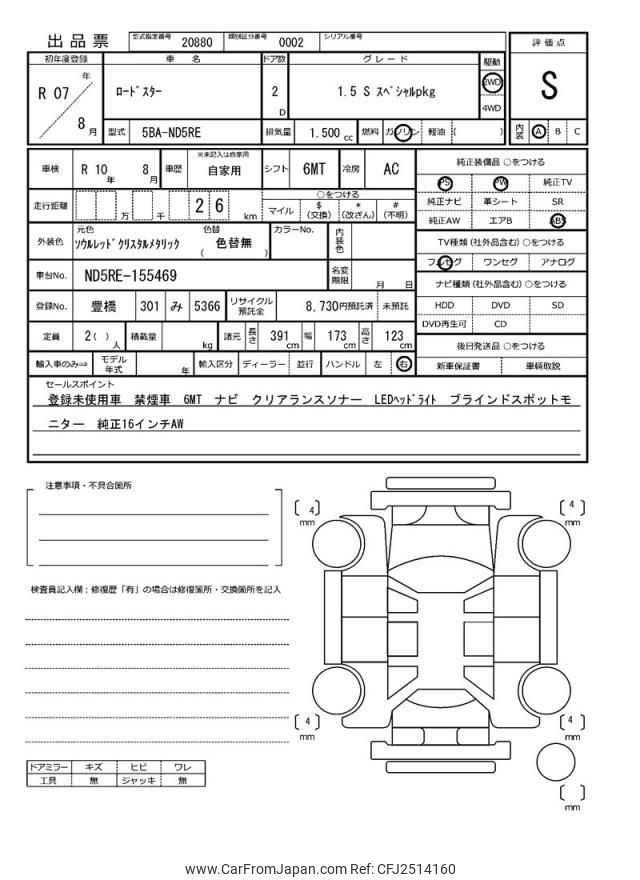 出品票 型式指定番号 20880 類別区分番号 0002 シリアル番号
評価点
S
内装 A B C
初年度登録 車名 ドア数 グレード 駆動
R 07 年 8 月 ﾛｰﾄﾞｽﾀｰ 2 D 1.5 S ｽﾍﾟｼｬﾙpkg 2WD 4WD
型式 5BA-ND5RE 排気量 1.500 cc 燃料 ガソリン 軽油 ( )
車検 R 10 年 8 月 車歴 ※未記入は自家用 自家用 シフト 6MT 冷房 AC
走行距離 万 千 2 6 km ○をつける
マイル $(交換) *(改ざん) #(不明)
外装色 元色 ｿｳﾙﾚｯﾄﾞｸﾘｽﾀﾙﾒﾀﾘｯｸ 色替 ( 色替無 ) カラーNo. 内装色
車台No. ND5RE-155469 名変期限 月 日
登録No. 豊橋 301 み 5366 リサイクル預託金 8,730円預託済 未預託
定員 2( )人 積載量 kg 諸元 長さ 391 cm 幅 173 cm 高さ 123 cm
輸入車のみ⇒ モデル年式 年 輸入区分 ディーラー 並行 ハンドル 左 右
純正装備品 ○をつける
PS PW 純正TV
純正ナビ 革シート SR
純正AW エアB ABS
TV種類(社外品含む)○をつける
フルセグ ワンセグ アナログ
ナビ種類(社外品含む)○をつける
HDD DVD SD
DVD再生可 CD
後日発送品 ○をつける
新車保証書 車輌取説
セールスポイント
登録未使用車 禁煙車 6MT ナビ クリアランスソナー LEDﾍｯﾄﾞﾗｲﾄ ブラインドスポットモ
ニター 純正16インチAW
注意事項・不具合箇所
検査員記入欄：修復歴「有」の場合は修復箇所・交換箇所を記入
[ 4 ] mm
[ 4 ] mm
[ 4 ] mm
[ 4 ] mm
[ ] mm
ドアミラー キズ ヒビ ワレ
工具 無 ジャッキ 無
www.CarFromJapan.com Ref: CFJ2514160